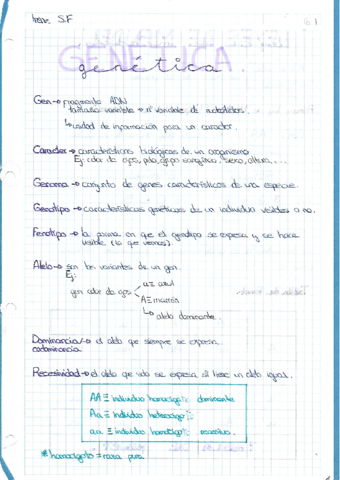 Irene S.F
GENÉTICA
genética
Gen → fragmento ADN
tamaño variable → nº variable de nucleótidos.
↳ unidad de información para un carácter.
Carácter → características biológicas de un organismo
Ej: color de ojos, pelo, grupo sanguíneo, sexo, altura...
Genoma → conjunto de genes característicos de una especie.
Genotipo → características genéticas de un individuo visibles o no.
Fenotipo → la forma en que el genotipo se expresa y se hace
visible (lo que vemos)
Alelo → son las variantes de un gen.
Ej:
gen color de ojos
a = azul
A = marrón
↳ alelo dominante.
Dominancia → el alelo que siempre se expresa.
codominancia.
Recesividad → el alelo que solo se expresa si tiene un alelo igual.
AA ≡ individuo homocigoto dominante
Aa ≡ individuo heterocigoto
aa ≡ individuo homocigoto recesivo.
* homocigoto = raza pura.